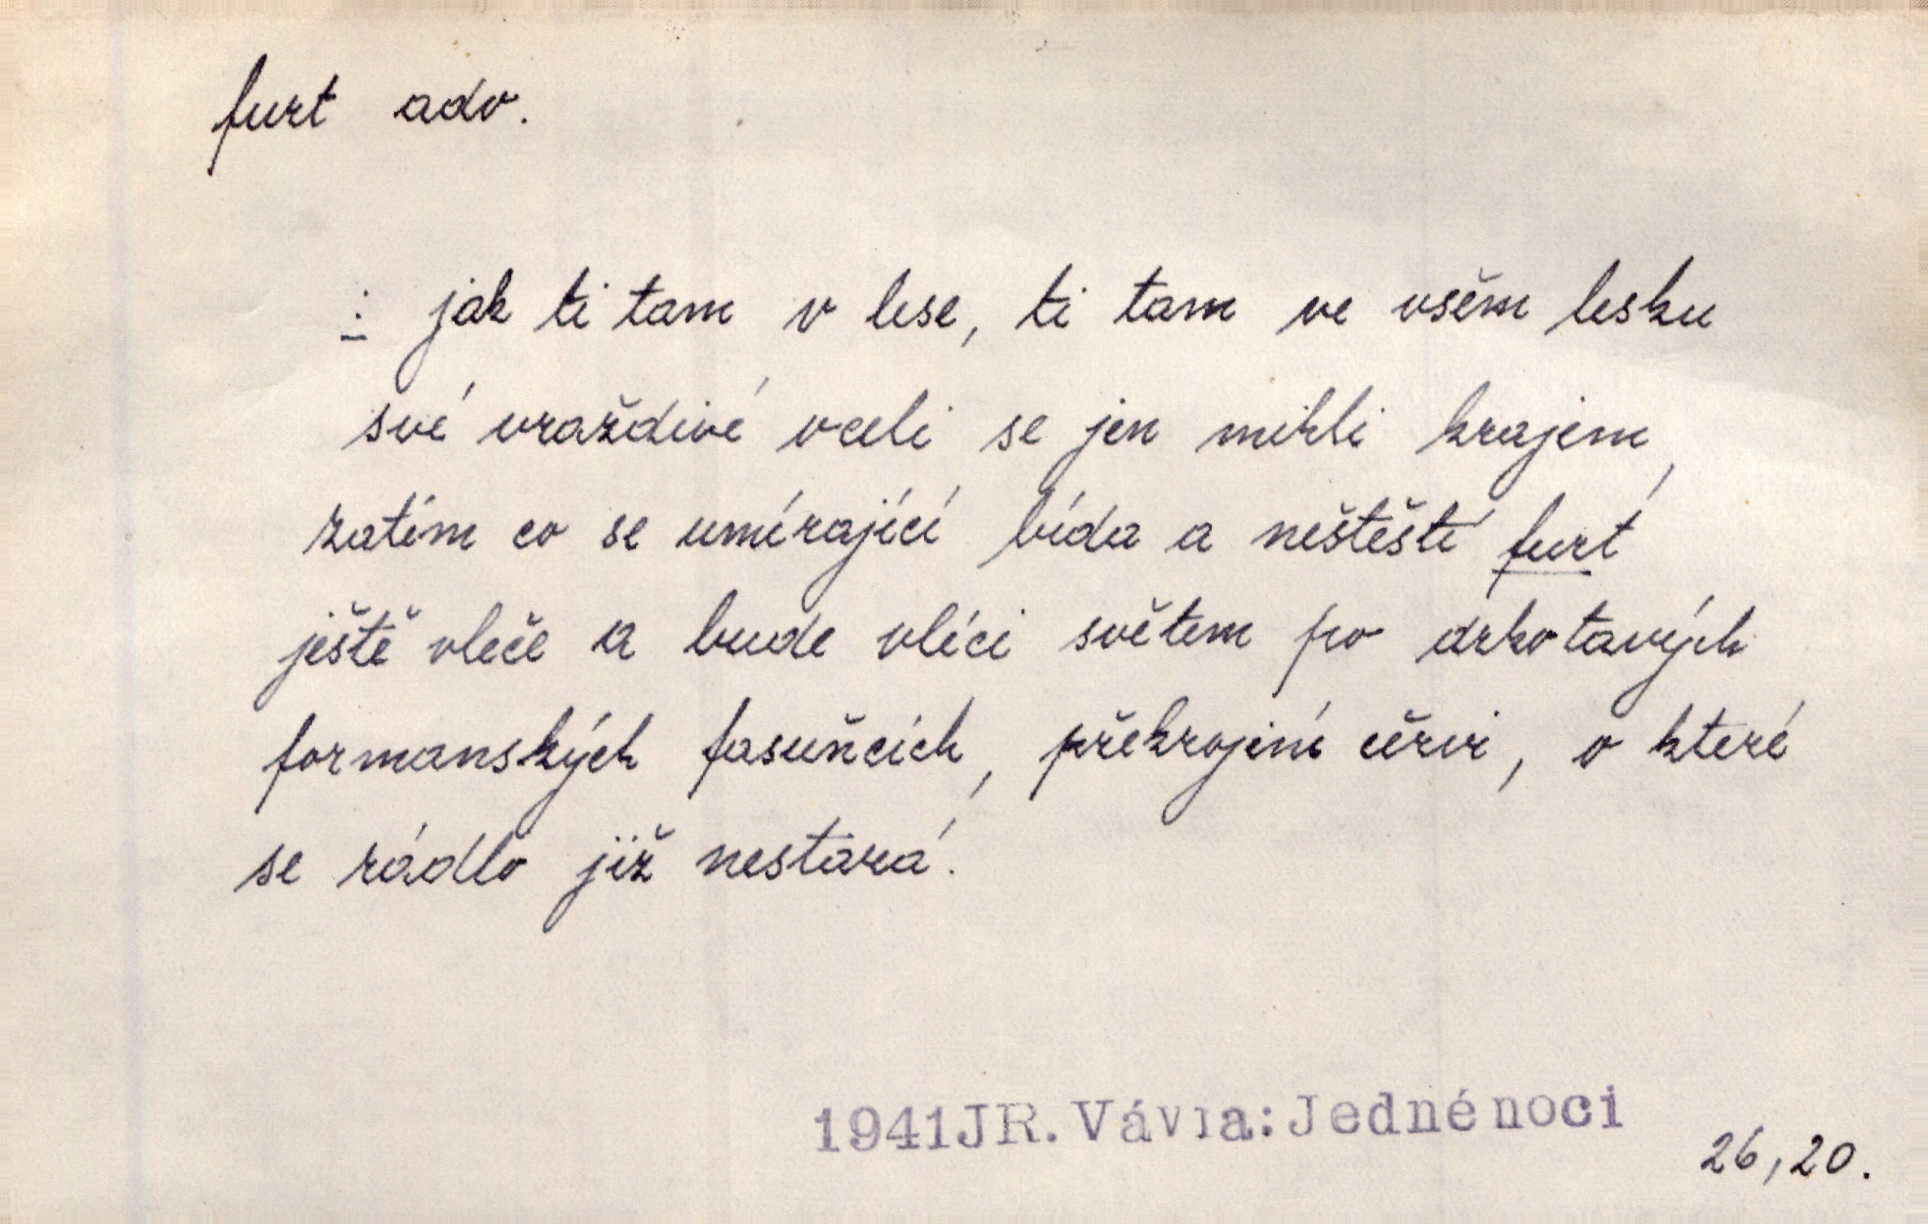 furt adv.
: jak ti tam v lese, ti tam ve všem lesku
své vraždivé oceli se jen mihli krajem,
zatím co se umírající bída a neštěstí furt
ještě vleče a bude vléci světem po drkotavých
formanských fasuňcích, překrojení červi, o které
se rádlo již nestará.
1941 JR. Vávra: Jedné noci
26, 20.